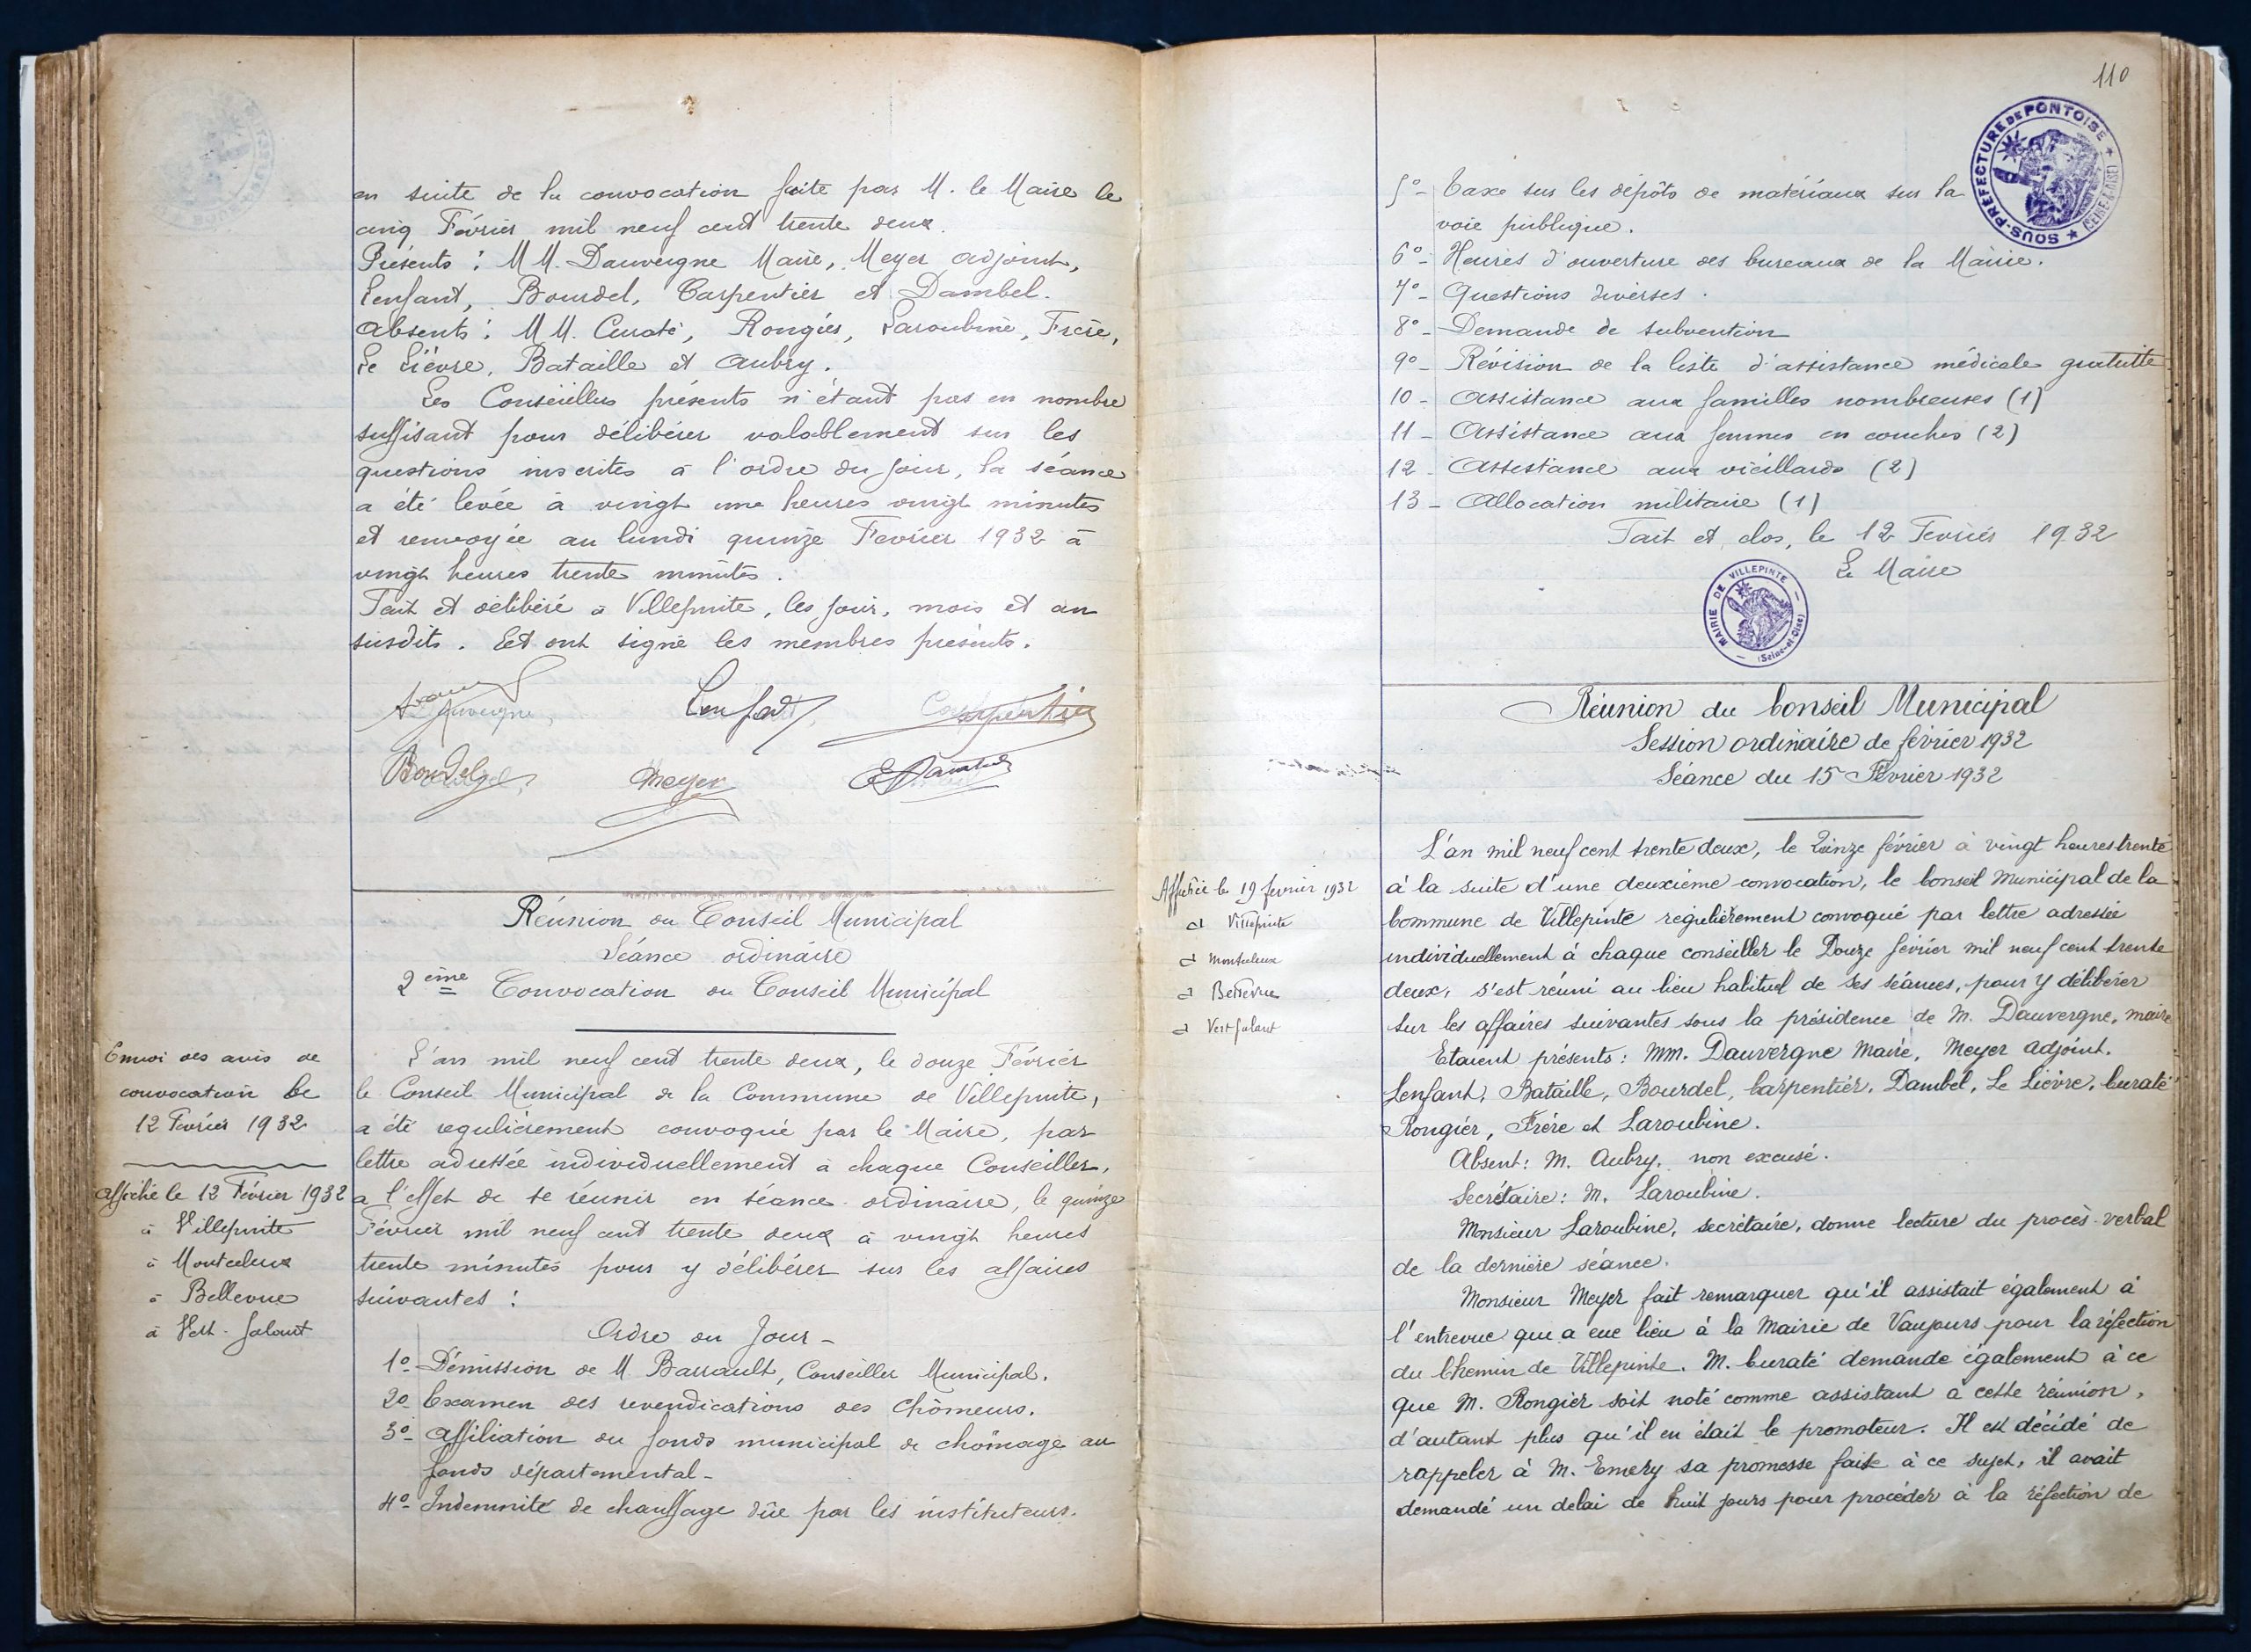 en suite de la convocation faite par M. le Maire le
cinq Février mil neuf cent trente deux.
Présents : MM. Dauvergne Maire, Meyer adjoint,
Lenfant, Bourdel, Carpentier et Dambel.
Absents : MM. Curaté, Rougier, Laroubine, Frère,
Le Lièvre, Bataille et Aubry.
Les Conseillers présents n'étant pas en nombre
suffisant pour délibérer valablement sur les
questions inscrites à l'ordre du jour, la séance
a été levée à vingt une heures vingt minutes
et renvoyée au lundi quinze Février 1932 à
vingt heures trente minutes.
Fait et délibéré à Villepinte, les jour, mois et an
susdits. Et ont signé les membres présents.
Dauvergne, Lenfant, Carpentier
Bourdel, Meyer EDambel
Réunion du Conseil Municipal
Séance ordinaire
2ème Convocation du Conseil Municipal
Envoi des avis de
convocation le
12 Février 1932
Affiché le 12 Février 1932
à Villepinte
à Montceleux
à Bellevue
à Vert-Galant
L'an mil neuf cent trente deux, le douze Février
le Conseil Municipal de la Commune de Villepinte,
a été regulièrement convoqué par le Maire, par
lettre adressée individuellement à chaque Conseiller,
a l'effet de se réunir en séance ordinaire, le quinze
Février mil neuf cent trente deux à vingt heures
trente minutes pour y délibérer sur les affaires
suivantes :
Ordre du Jour -
1º- Démission de M. Barrault, Conseiller Municipal.
2º Examen des revendications des Chômeurs.
3º- Affiliation du fonds municipal de chômage au
fonds départemental -
4º- Indemnité de chauffage dûe par les instituteurs.
110
SOUS-PREFECTURE DE PONTOISE (SEINE-&-OISE)
5º- Taxe sur les dépôts de matériaux sur la
voie publique.
6º- Heures d'ouverture des bureaux de la Mairie.
7º- Questions diverses.
8º- Demande de subvention
9º- Révision de la liste d'assistance médicale gratuite
10- Assistance aux familles nombreuses (1)
11- Assistance aux femmes en couches (2)
12- Assistance aux vieillards (2)
13- Allocation militaire (1)
Fait et clos, le 12 Fevrier 1932
Le Maire
MAIRIE DE VILLEPINTE (Seine-et-Oise)
Réunion du Conseil Municipal
Session ordinaire de février 1932
Séance du 15 Février 1932
Affichée le 19 fevrier 1932
à Villepinte
à Montceleux
à Bellevue
à Vert galant
L'an mil neuf cent trente deux, le Quinze février à vingt heures trente
à la suite d'une deuxième convocation, le Conseil Municipal de la
Commune de Villepinte regulièrement convoqué par lettre adressée
individuellement à chaque conseiller le Douze février mil neuf cent trente
deux, s'est réuni au lieu habituel de ses séances, pour y délibérer
sur les affaires suivantes sous la présidence de M. Dauvergne, maire
Etaient présents : MM. Dauvergne Maire, Meyer adjoint.
Lenfant, Bataille, Bourdel, Carpentier, Dambel, Le Lièvre, Curaté
Rougier, Frère et Laroubine.
Absent : M. Aubry, non excusé.
Secrétaire : M. Laroubine.
Monsieur Laroubine, secrétaire, donne lecture du procès-verbal
de la dernière séance.
Monsieur Meyer fait remarquer qu'il assistait également à
l'entrevue qui a eue lieu à la Mairie de Vaujours pour la réfection
du Chemin de Villepinte. M. Curaté demande également à ce
que M. Rougier soit noté comme assistant à cette réunion,
d'autant plus qu'il en était le promoteur. Il est décidé de
rappeler à M. Emery sa promesse faite à ce sujet, il avait
demandé un delai de huit jours pour procéder à la réfection de